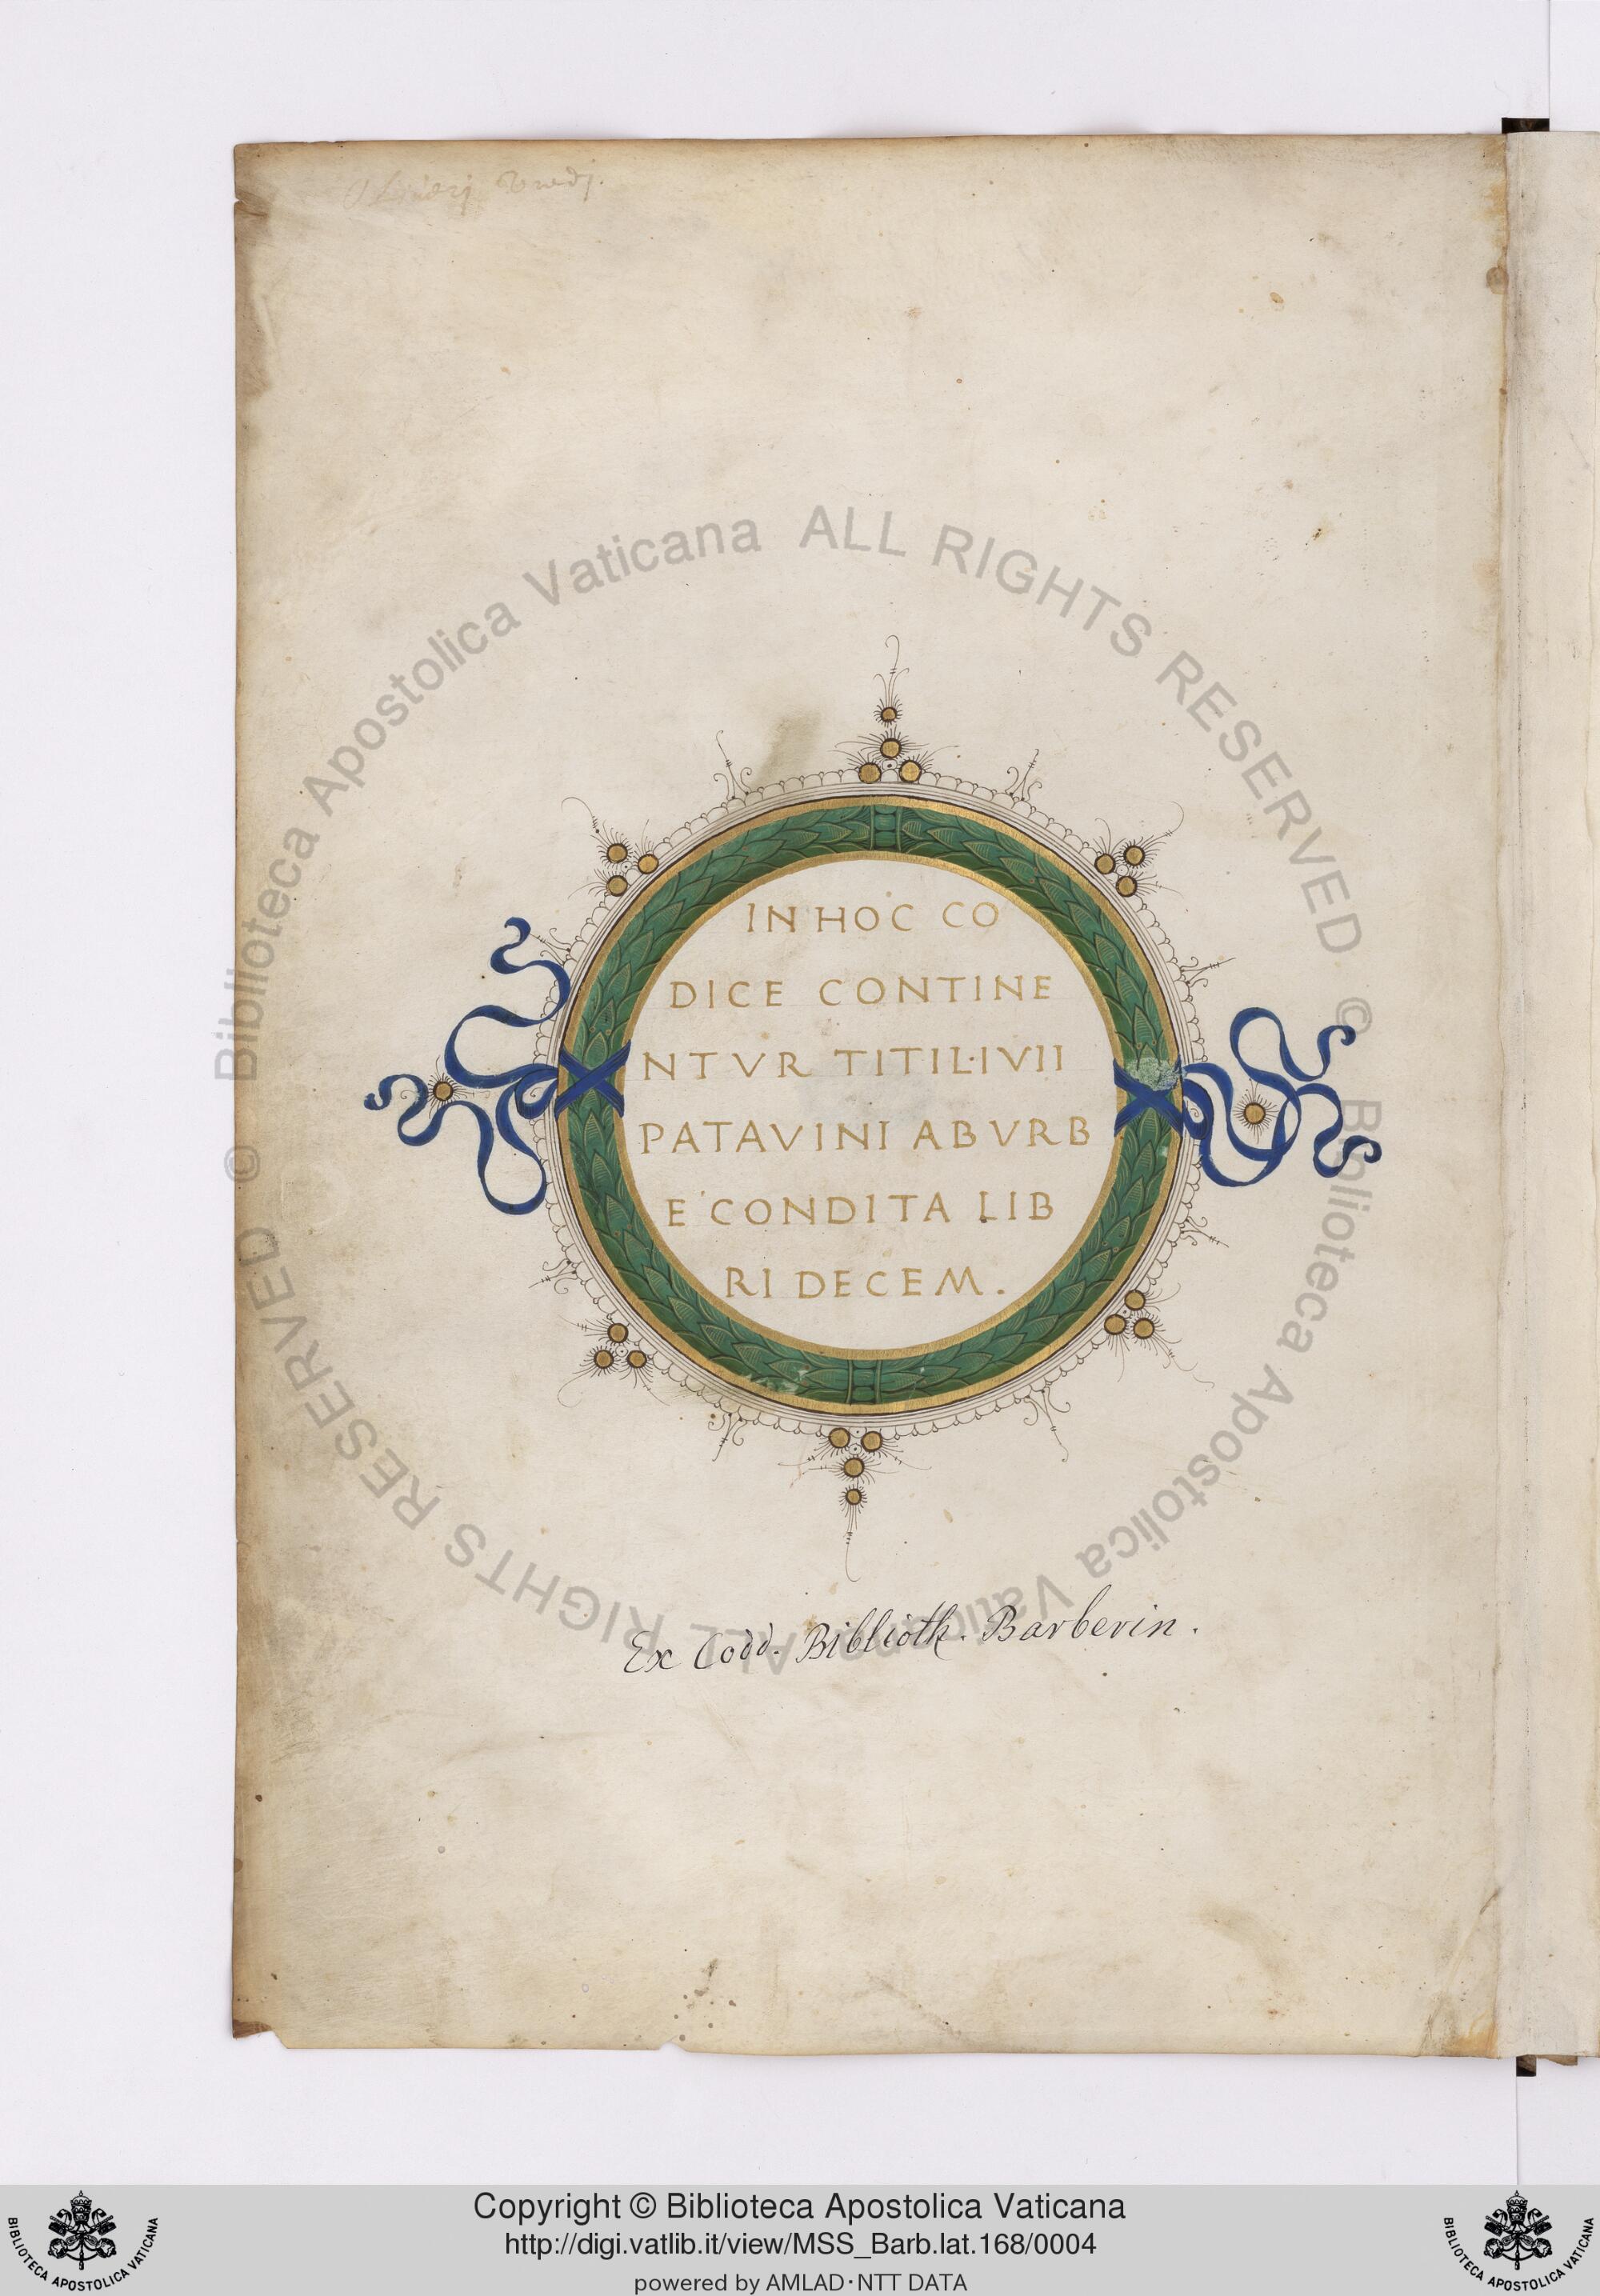 IN HOC CO
DICE CONTINE
NTVR TITI L·IVII
PATAVINI AB VRB
E CONDITA LIB
RI DECEM.
Ex Codd. Biblioth. Barberin.
© Biblioteca Apostolica Vaticana ALL RIGHTS RESERVED
© Biblioteca Apostolica Vaticana ALL RIGHTS RESERVED
Copyright © Biblioteca Apostolica Vaticana
http://digi.vatlib.it/view/MSS_Barb.lat.168/0004
powered by AMLAD·NTT DATA
BIBLIOTECA APOSTOLICA VATICANA
BIBLIOTECA APOSTOLICA VATICANA